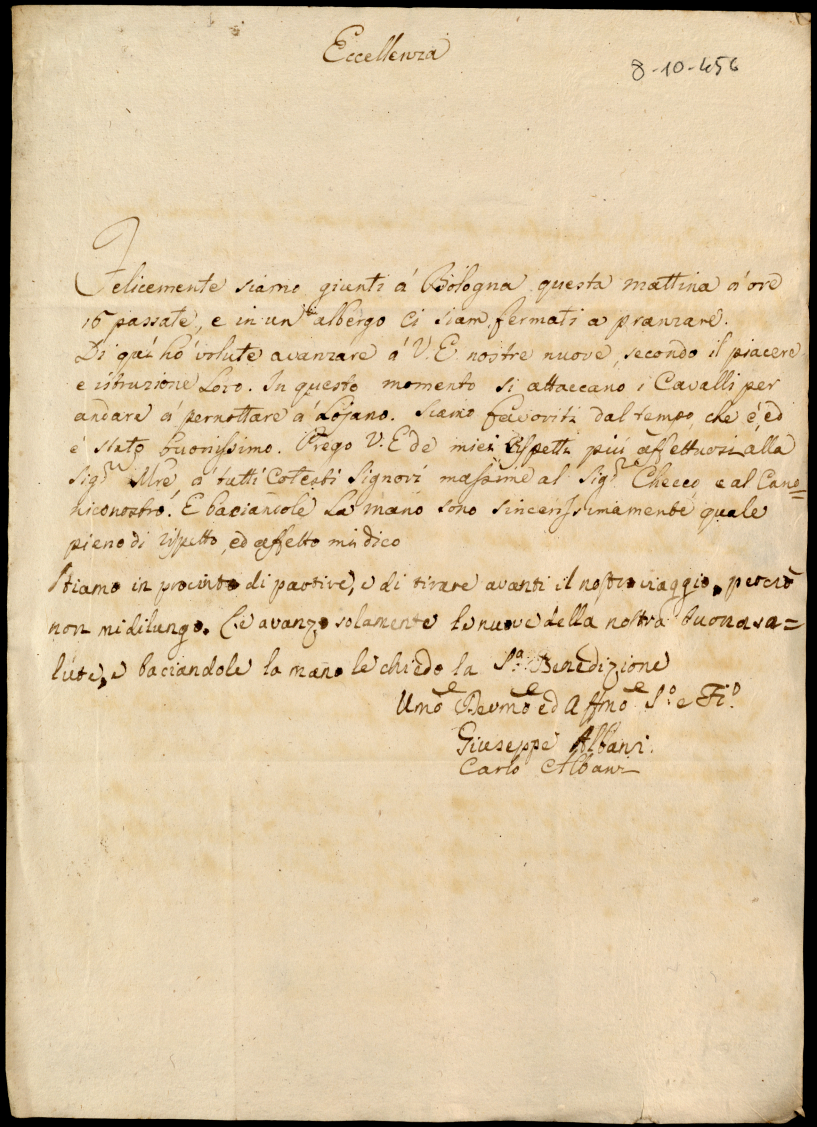 Eccellenza
8-10-456
Felicemente siamo giunti á Bologna questa mattina á ore
16 passate, e in un albergo ci siam fermati a pranzare.
Di quí hó volute avanzare á V. E. nostre nuove, secondo il piacere
e istruzione Loro. In questo momento si attaccano i Cavalli per
andare á pernottare á Lojano. Siamo favoriti dal tempo, che é, ed
é stato buonissimo. Prego V. E de miei rispetti piú affettuosi alla
Sigra Mre á tutti Cotesti Signori massime al Sigr Checco e al Cano=
nico nostro. E baciandole La mano sono sincerissimamente quale
pieno di rispetto, ed affetto mi dico
Stiamo in procinto di partire, e di tirare avanti il nostro viaggio, perciò
non mi dilungo. Le avanzo solamente le nuove della nostra buona sa=
lute, e baciandole la mano le chiedo la Sa: Benedizione
Umo e Devmo e ed Affmo e So: e Fio.
Giuseppe Albani.
Carlo Albani